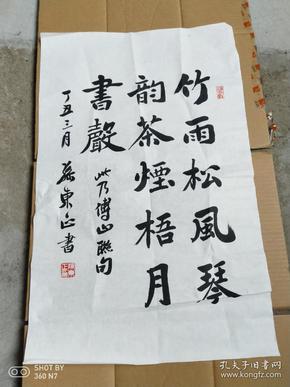 竹雨松風琴
韵茶煙梧月
書聲
此乃傅山聯句
丁丑三月
東正書
SHOT BY
360 N7
孔夫子旧书网